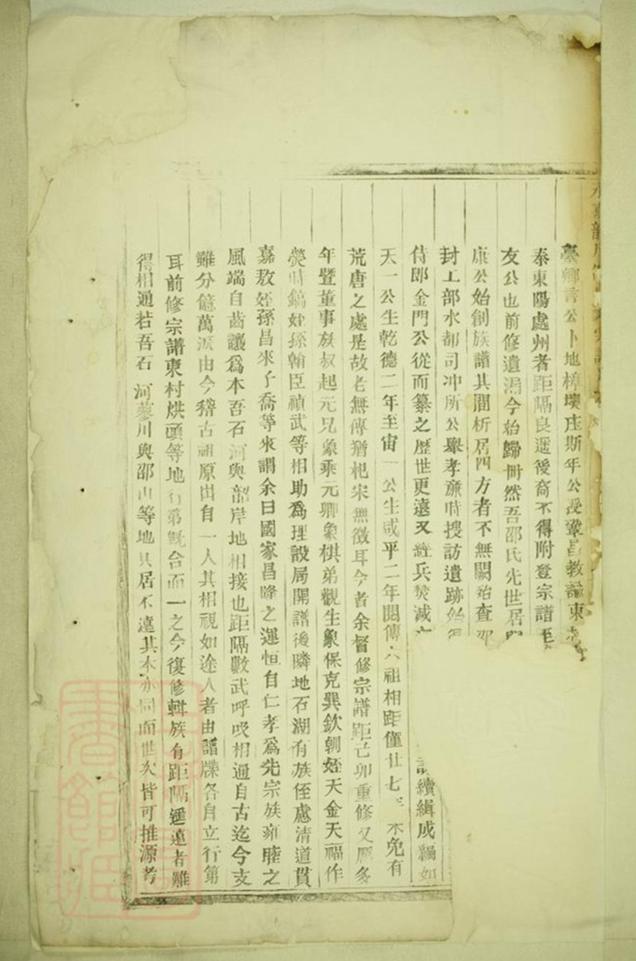 卜地樟墺庄斯年公授鞏昌教諭東
泰東陽處州者距隔良遥後裔不得附登宗譜至
友公也前修遺漏今始歸冊然吾邵氏先世居
康公始創族譜其間析居四方者不無闕殆查
封工部水都司冲所公舉孝亷時搜訪遺跡始
侍郎金門公從而纂之歷世更遠又經兵燹滅 續緝成編如
天一公生乾德二年至宙一公生咸平二年閱傳六祖相距僅廿七 不免有
荒唐之處是故老無傳猶杞宋無徵耳今者余督修宗譜距己卯重修又歷多
年暨董事族叔起元兄象乘元卿象棋弟觀生象保克巽欽朝姪天金天福作
熒時鎬姪孫翰臣禎武等相助爲理設局開譜後隣地石湖有族侄處清道貫
嘉敖姪孫昌來子喬等來謂余曰國家昌隆之運恒自仁孝爲先宗族雍睦之
風端自齒讓爲本吾石河與韶岸地相接也距隔數武呼吸相通自古迄今支
雖分億萬派由今稽古祖原出自一人其相視如途人者由譜牒各自立行第
耳前修宗譜東村烘頭等地行第旣合而一之今復修輯族有距隔遥遠者雖
得相通若吾石河蓼川與邵山等地其居不遠其本亦同而世次皆可推源考